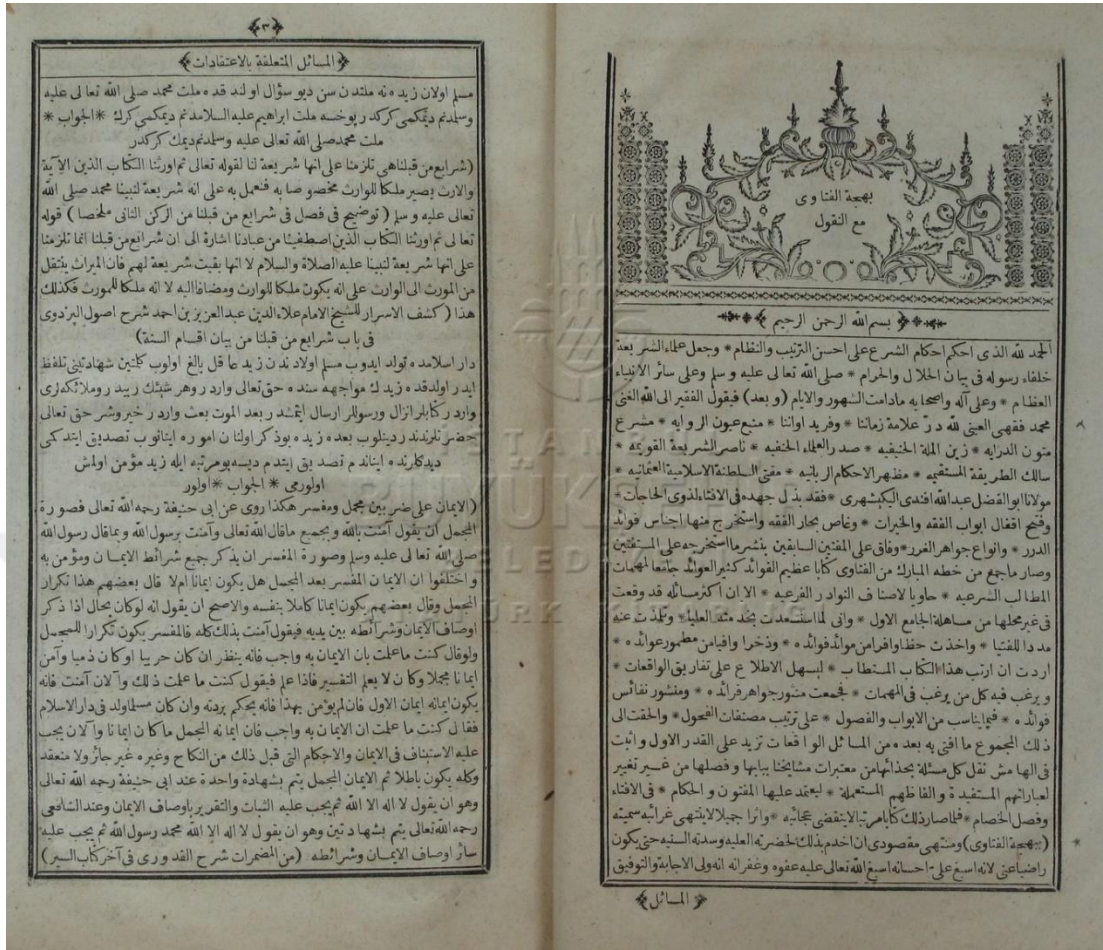 بهجة الفتاوى
مع النقول
بسم الله الرحمن الرحيم
الحمد لله الذى احكم احكام الشرع على احسن الترتيب والنظام * وجعل علماء الشريعة
خلفاء رسوله فى بيان الحلال والحرام * صلى الله تعالى عليه وسلم وعلى سائر الانبياء
العظام * وعلى آله واصحابه مادامت الشهور والايام (وبعد) فيقول الفقير الى الله الغنى
محمد فقهى العينى لله در علامة زماننا * وفريد اواننا * منبع عيون الروايه * مشرع
متون الدرايه * زين الملة الحنيفيه * صدر العلماء الحنفيه * ناصر الشريعة القويمه *
سالك الطريقة المستقيمه * مظهر الاحكام الربانيه * مفتى السلطنة الاسلامية العثمانيه *
مولانا ابو الفضل عبدالله افندى اليكيشهرى * فقد بذل جهده فى الافتاء لذوى الحاجات *
وفتح اقفال ابواب الفقه والخيرات * وغاص بحار الفقه واستخرج منها اجناس فوائد
الدرر * وانواع جواهر الغرر * وفاق على المفتين السابقين بنشر ما استخرجه على المستفتين
وصار ماجمع من خطه المبارك من الفتاوى كتابا عظيم الفوائد كثير العوائد جامعا لمهمات
المطالب الشرعيه * حاويا لاصناف النوادر الفرعيه * الا ان اكثر مسائله قد وقعت
فى غير محلها من مساهلة الجامع الاول * وانى لما استسعدت بخدمته العليا * وتلمذت عنه
مددا للفتيا * واخذت حظا وافرا من موائد فوائده * وذخرا وافيا من مطمور عوائده *
اردت ان ارتب هذا الكتاب المستطاب * ليسهل الاطلاع على تفاريق الواقعات *
ويرغب فيه كل من يرغب فى المهمات * فجمعت منثور جواهر فرائده * ومنشور نفائس
فوائده * فيما يناسب من الابواب والفصول * على ترتيب مصنفات الفحول * والحقت الى
ذلك المجموع ما افتى به بعده من المسائل الواقعات تزيد على القدر الاول واثبت
فى الهامش نقل كل مسئلة بحذائها من معتبرات مشايخنا ببابها وفصلها من غير تغيير
لعباراتهم المستفيدة والفاظهم المستعملة * ليعتمد عليها المفتون والحكام * فى الافتاء
وفصل الخصام * فلما صار ذلك كتابا مرتبا لا ينقضى عجائبه * واثرا جميلا لا ينتهى غرائبه سميته
(ببهجة الفتاوى) ومنتهى مقصودى ان اخدم بذلك لحضرته العليه وسدته السنيه حتى يكون
راضيا عنى لانه اسبغ على احسانه اسبغ الله تعالى عليه عفوه وغفرانه انه ولى الاجابة والتوفيق
المسائل
٣
المسائل المتعلقة بالاعتقادات
مسلم اولان زيده نه ملتدن سن ديو سؤال اولندقده ملت محمد صلى الله تعالى عليه
وسلمدنم ديمكمى كركدر يوخسه ملت ابراهيم عليه السلامدنم ديمكمى كرك * الجواب *
ملت محمد صلى الله تعالى عليه وسلمدنم ديمك كركدر
(شرايع من قبلنا هى تلزمنا على انها شريعة لنا لقوله تعالى ثم اورثنا الكتاب الذين الآية
والارث يصير ملكا للوارث مخصوصا به فنعمل به على انه شريعة لنبينا محمد صلى الله
تعالى عليه وسلم (توضيح فى فصل فى شرايع من قبلنا من الركن الثانى ملخصا) قوله
تعالى ثم اورثنا الكتاب الذين اصطفينا من عبادنا اشارة الى ان شرايع من قبلنا انما تلزمنا
على انها شريعة لنبينا عليه الصلاة والسلام لا انها بقيت شريعة لهم فان الميراث ينتقل
من المورث الى الوارث على انه يكون ملكا للوارث ومضافا اليه لا انه ملكا للمورث فكذلك
هذا (كشف الاسرار للشيخ الامام علاء الدين عبد العزيز بن احمد شرح اصول البزدوى
فى باب شرايع من قبلنا من بيان اقسام السنة)
دار اسلامده تولد ايدوب مسلم اولادندن زيد عاقل بالغ اولوب كلمتين شهادتينى تلفظ
ايدر اولدقده زيدك مواجهه سنده حق تعالى واردر وهر شيئك ربيدر وملائكه لرى
واردر كتابلر انزال ورسوللر ارسال ايتمشدر بعد الموت بعث واردر خير وشر حق تعالى
حضرتلرندندر دينلوب بعده زيده بو ذكر اولنان اموره اينانوب تصديق ايتدكمى
ديدكلرنده ايناندم تصديق ايتدم ديسه بو مرتبه ايله زيد مؤمن اولمش
اولورمى * الجواب * اولور
(الايمان على ضربين مجمل ومفسر هكذا روى عن ابى حنيفة رحمه الله تعالى فصورة
المجمل ان يقول آمنت بالله وبجميع ماقال الله تعالى وآمنت برسول الله وبماقال رسول الله
صلى الله تعالى عليه وسلم وصورة المفسر ان يذكر جميع شرائط الايمان ومؤمن به
واختلفوا ان الايمان المفسر بعد المجمل هل يكون ايمانا ام لا قال بعضهم هذا تكرار
المجمل وقال بعضهم يكون ايمانا كاملا بنفسه والاصح ان يقول انه لوكان بحال اذا ذكر
اوصاف الايمان وشرائطه بين يديه فيقول آمنت بذلك كله فالمفسر يكون تكرارا للمجمل
ولو قال كنت ما علمت بان الايمان به واجب فانه ينظر ان كان حربيا او كان ذميا وآمن
ايمانا مجملا وكان لا يعلم التفسير فاذا علم فيقول كنت ما علمت ذلك والآن آمنت فانه
يكون ايمانه ايمان الاول فان لم يؤمن بهذا فانه يحكم بردته وان كان مسلما ولد فى دار الاسلام
فقال كنت ما علمت ان الايمان به واجب فان ايمانه المجمل ما كان ايمانا والآن يجب
عليه الاستيناف فى الايمان والاحكام التى قبل ذلك من النكاح وغيره غير جائز ولا منعقد
وكله يكون باطلا ثم الايمان المجمل يتم بشهادة واحدة عند ابى حنيفة رحمه الله تعالى
وهو ان يقول لا اله الا الله ثم يجب عليه الثبات والتقرير باوصاف الايمان وعند الشافعى
رحمه الله تعالى يتم بشهادتين وهو ان يقول لا اله الا الله محمد رسول الله ثم يجب عليه
سائر اوصاف الايمان وشرائطه (من المضمرات شرح القدورى فى آخر كتاب السير)
İSTANBUL
BÜYÜKŞEHİR
BELEDİYESİ
ATATÜRK KİTAPLIĞI